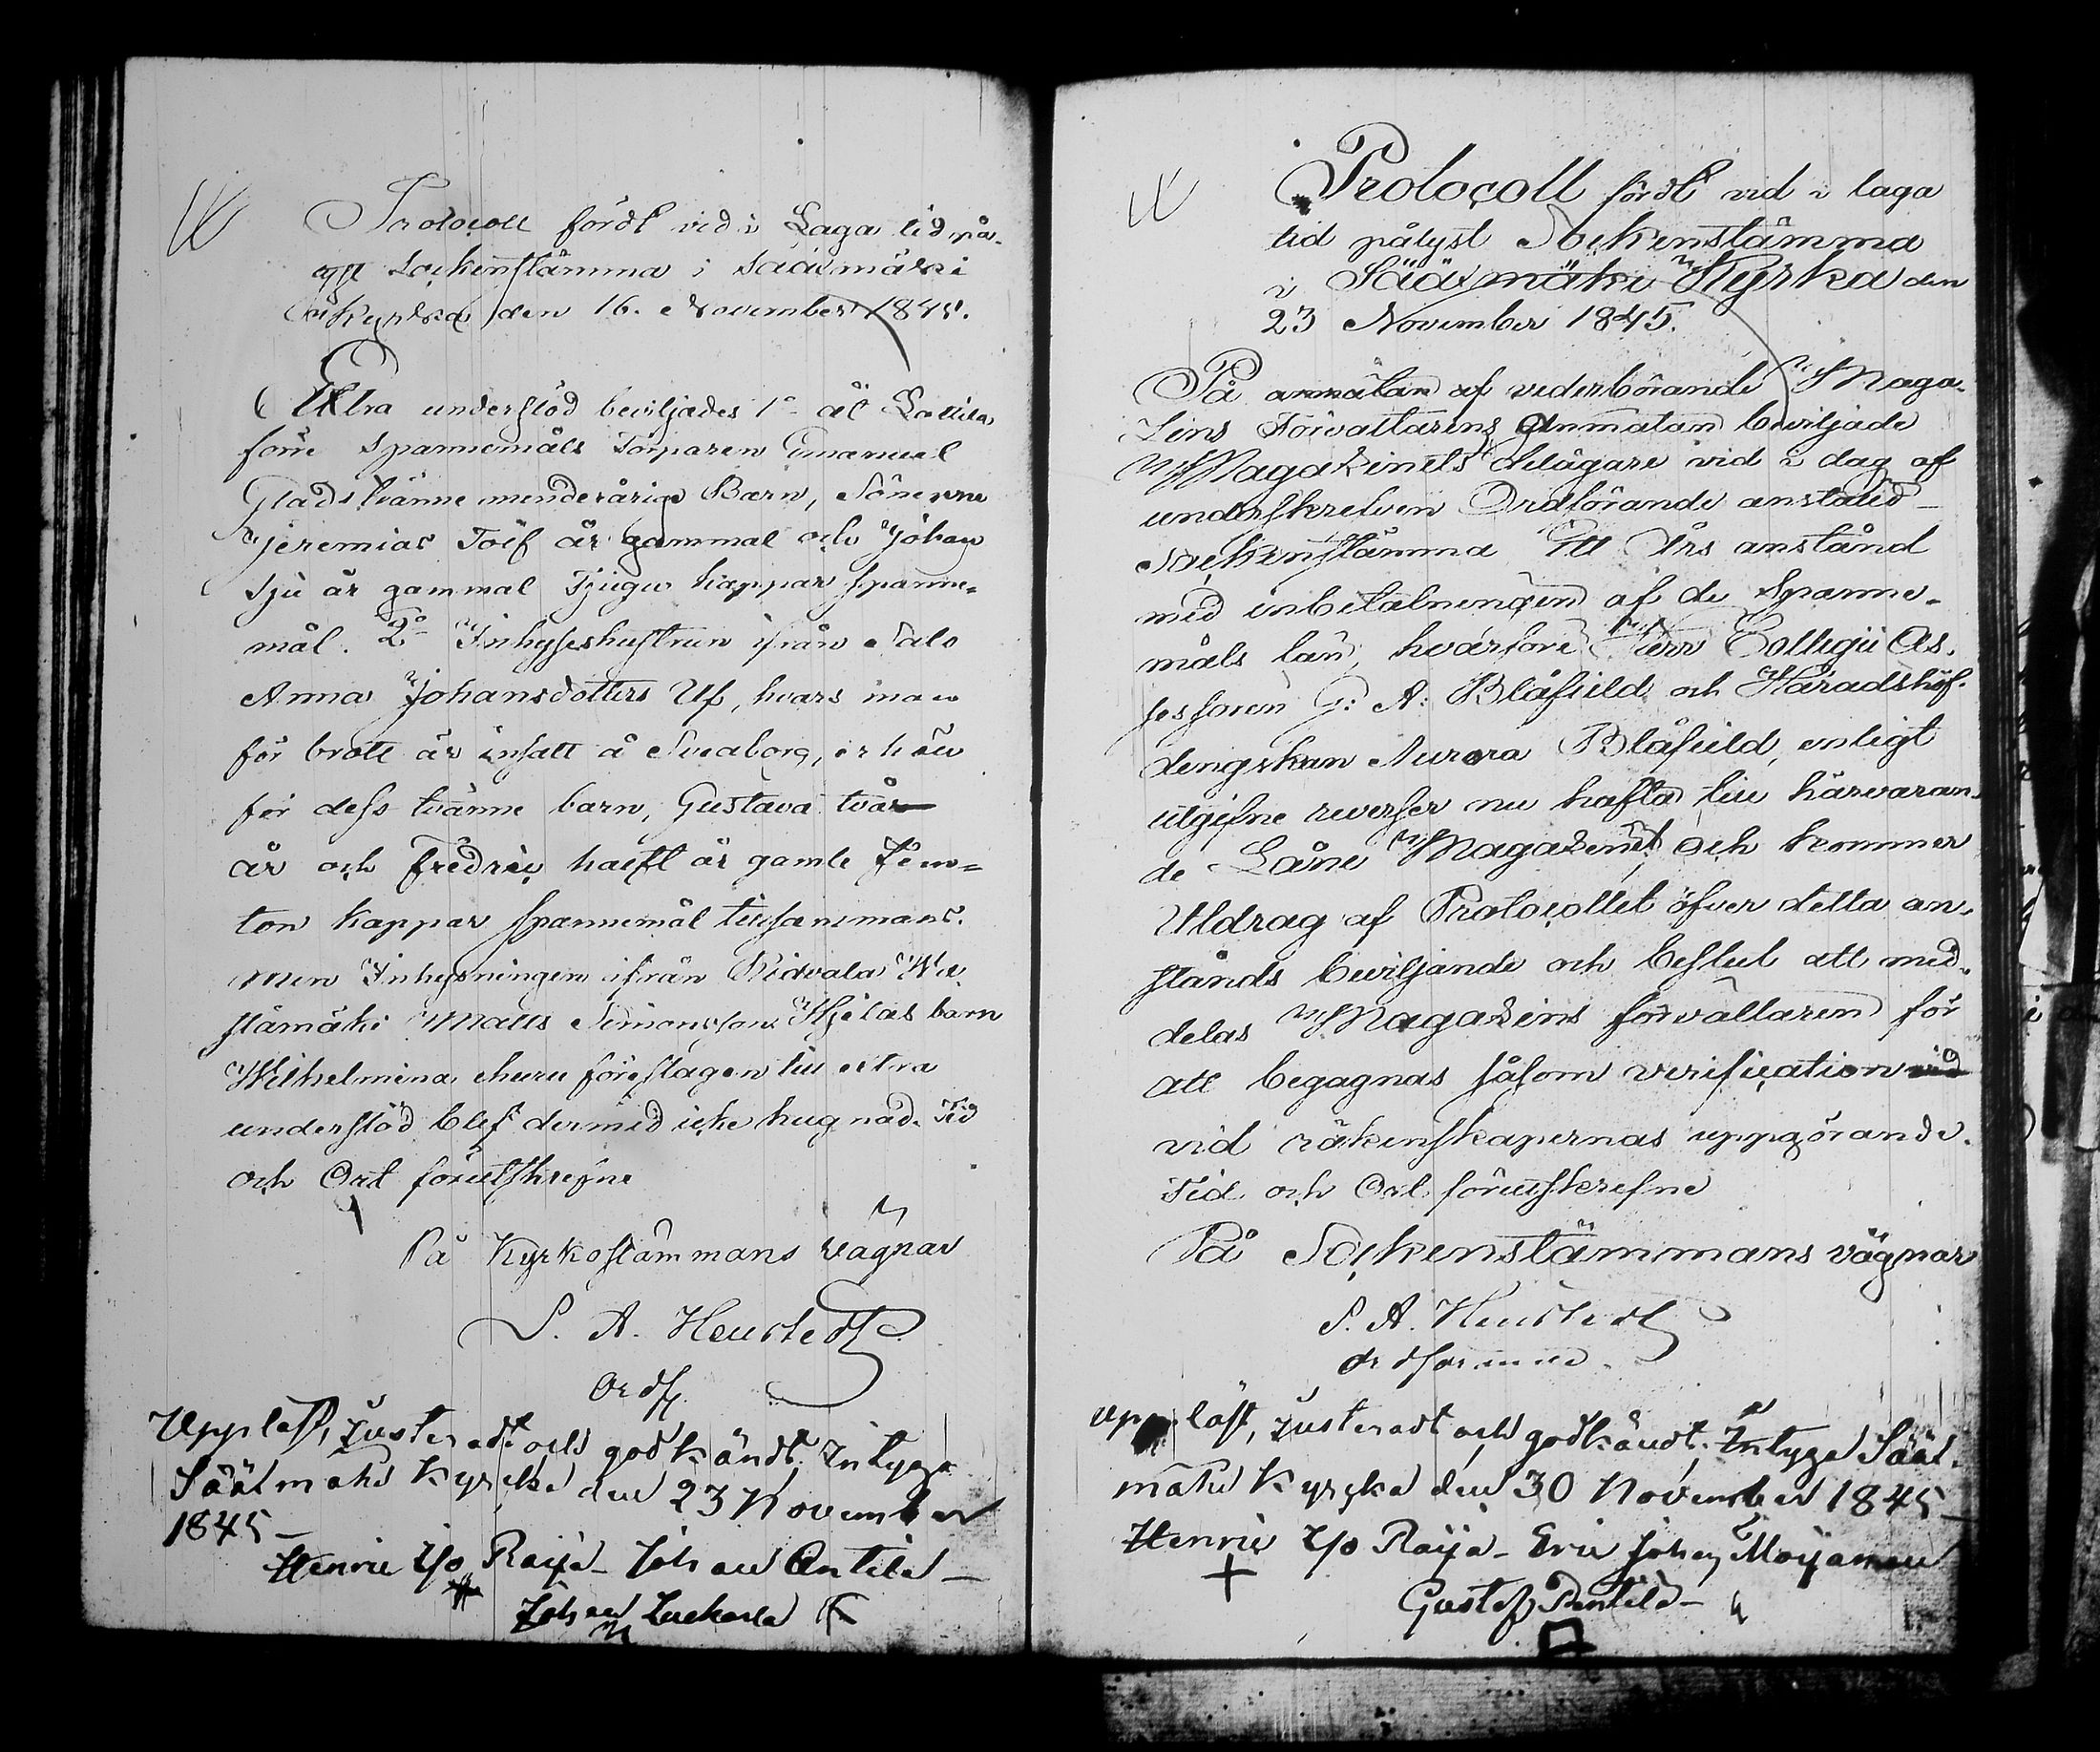 Protocoll fördt vid i Laga tid på-
lyst Sockenstämma i Sääxmäki
Kyrka den 16. November 1845.
Extra understöd beviljades 1o åt Lottila
förre Spannemåls Torparen Emanuel
Glads tvänne menderårige Barn, Sönerne
Jeremias Tolf år gammal och Johan
Sju år gammal Tjugu kappar spanne-
mål. 2o Inhyseshustrun ifrån Salo
Anna Johansdotter Ulf, hvars man
för brott är insatt å Sveaborg, erhöll
för dess tvänne barn, Gustava två
år och Fredric halft år gamle fem-
ton kappar spannemål tillsammans.
Men Inhysningen ifrån Ridvala
Matts Simonsson Hjelas barn
Wilhelmina ehuru föreslagen till extra
understöd blef dermed icke hugnad. Tid
och Ort förutskrefne
På Kyrkostämmans vägnar
S. A. Heurstedt
Ordf.
Uppläst, Justeradt och godkändt, Intyga
Sääxmäki Kyrcka den 23 November
1845
Henric Yso Raija - Johan Antila -
Johan Luckarla
Protocoll fördt vid i laga
tid pålyst Sockenstämma
i Sääxmäki Kyrka den
23 November 1845.
På anmälan af vederbörande Maga-
zins Förvaltarens anmälan beviljade
Magazinets delägare vid i dag af
underskrefven Ordförande anstäld
Sockenstämma Ett Års anstånd
med inbetalningen af de Spanne-
måls lån, hvarföre Herr Collegii As-
sessoren G: A: Blåfield och Häradshöf-
dingskan Aurora Blåfield, enligt
utgifne reverser nu häfta till härvaran-
de Låne Magazinet Och kommer
Utdrag af Protocollet öfver detta an-
stånds beviljande och beslut att med-
delas Magazins förvaltaren för
att begagnas såsom verification vid
vid räkenskapernas uppgörande.
Tid och Ort förutskrefne
På Sockenstämmans vägnar
S. A. Heurstedt
Ordförande
Uppläst, Justeradt och godkändt, Intyga Sääx-
mäki Kyrcka den 30 November 1845
Henric Yso Raija - Eric Johan Moijanen
Gustaf Penttilä -